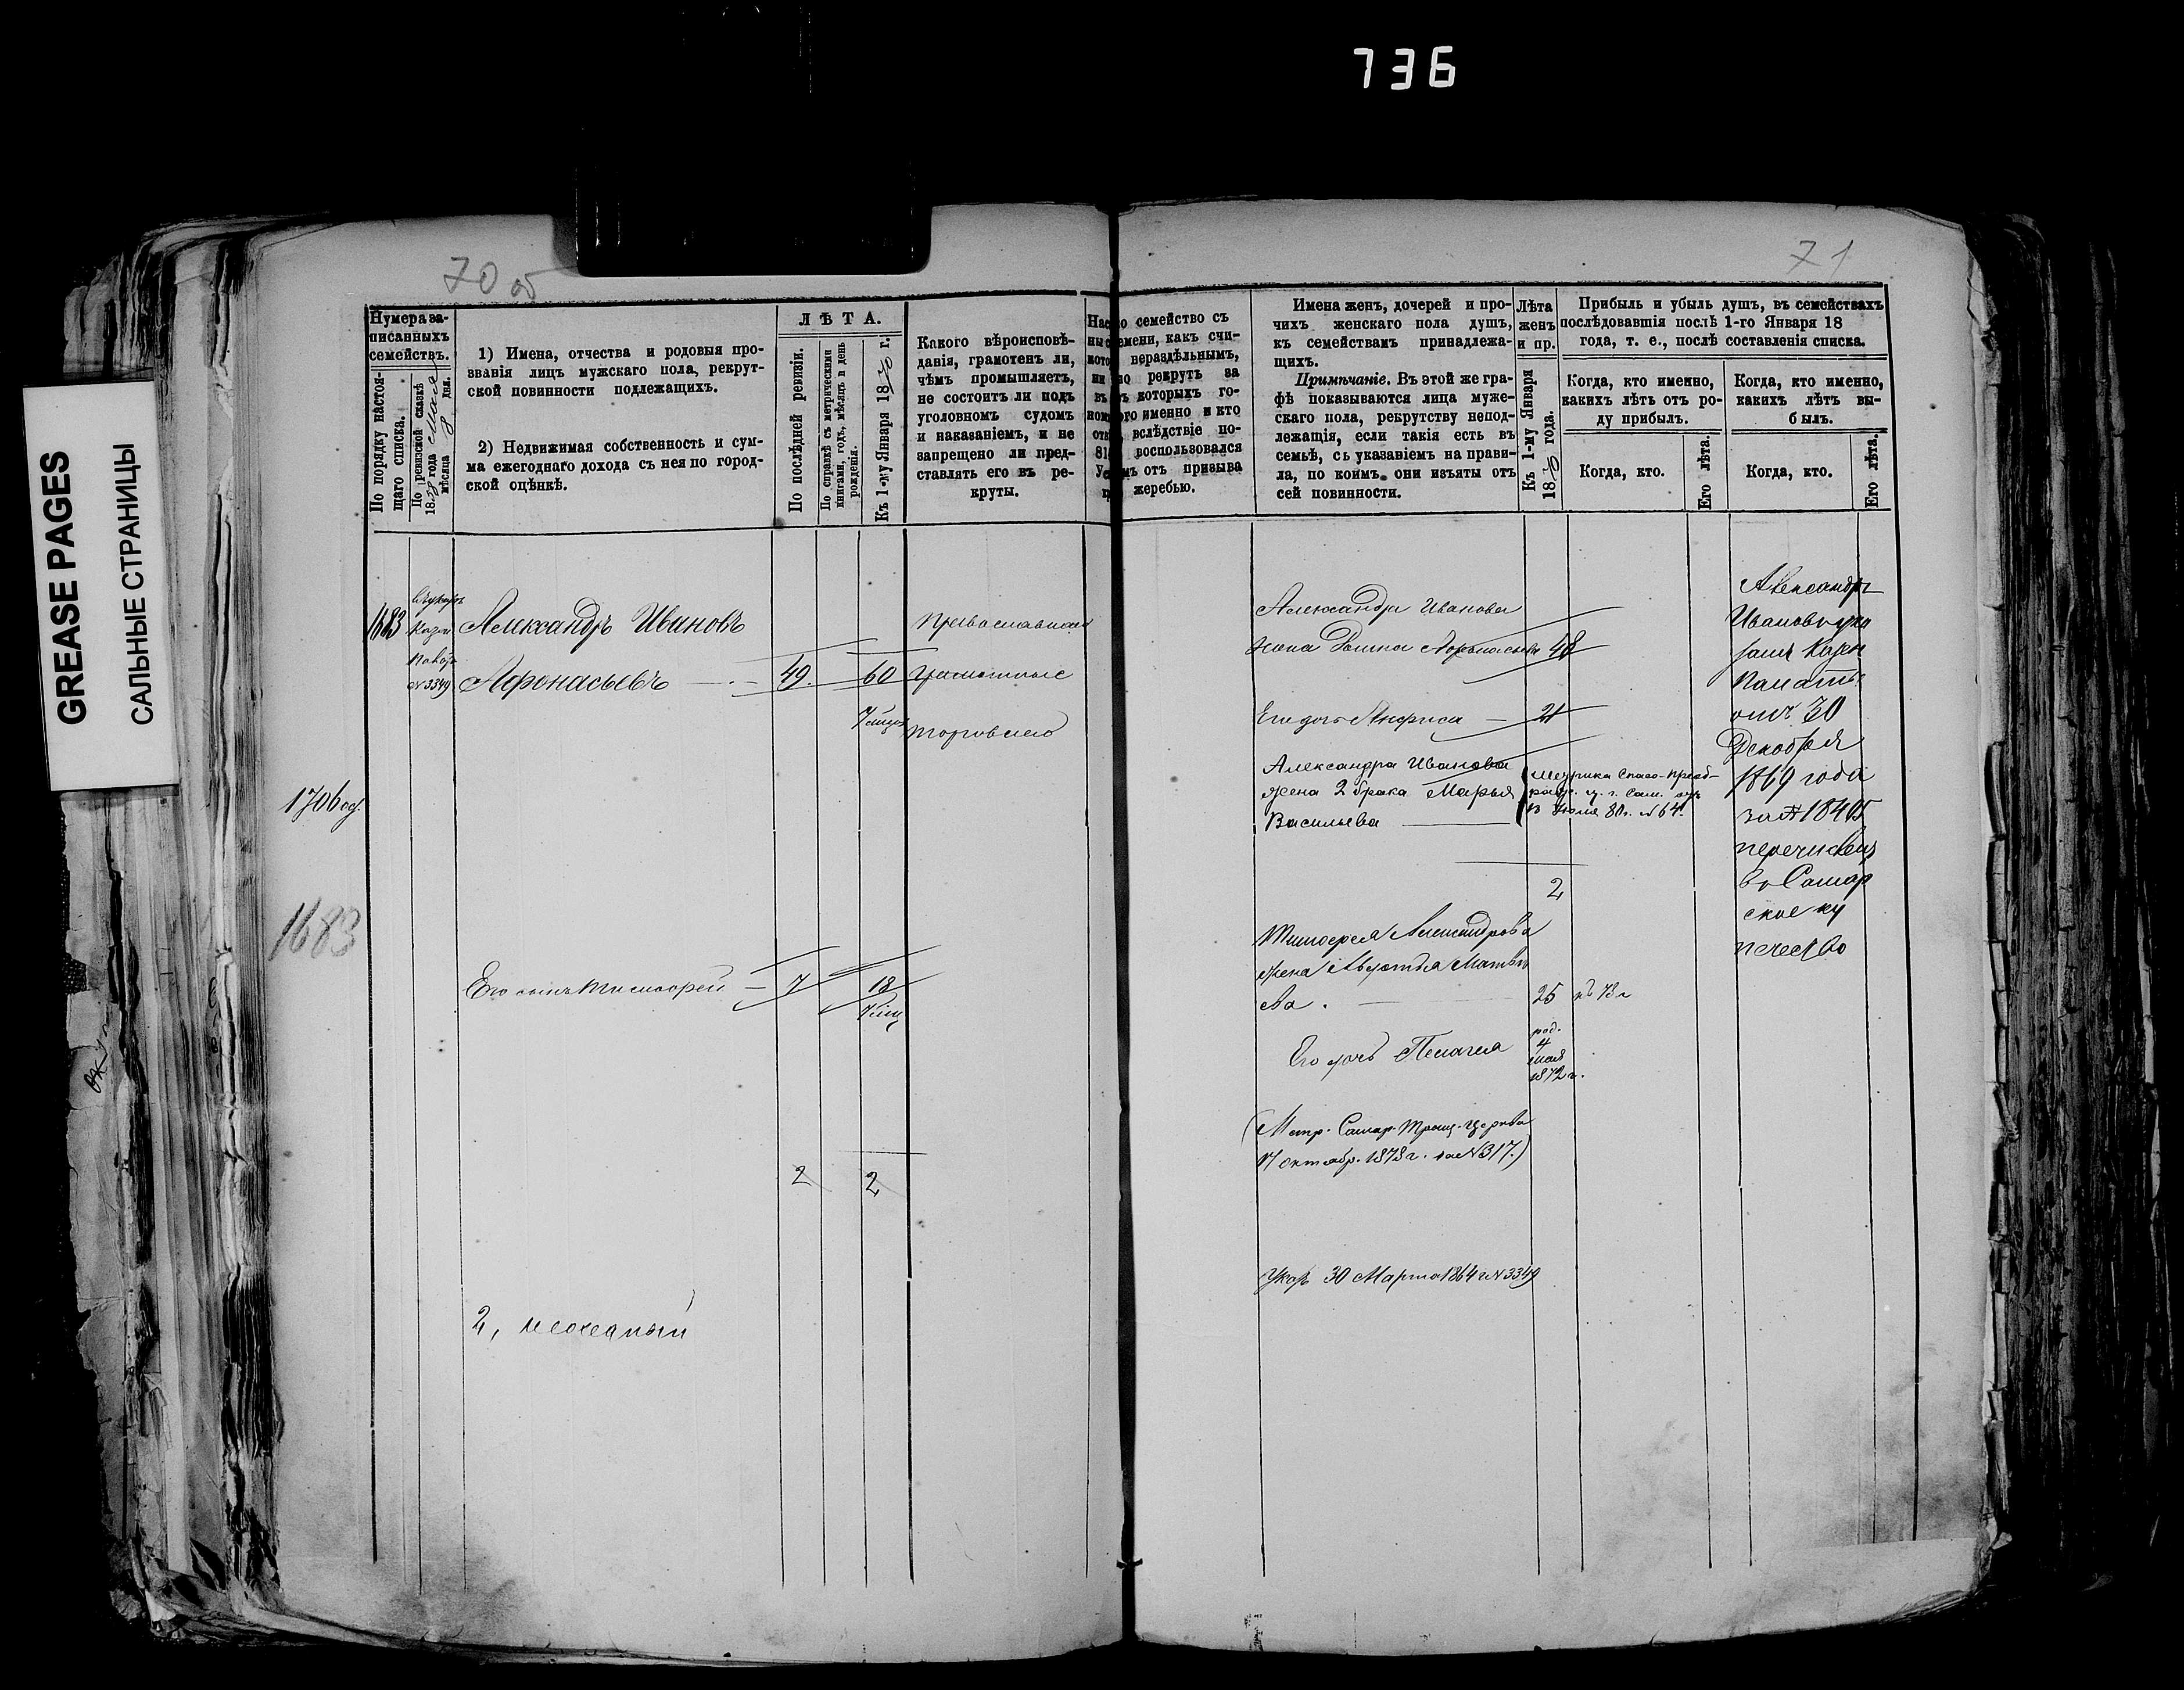 736
GREASE PAGES
САЛЬНЫЕ СТРАНИЦЫ
70 об
71
Нумера за-
писанныхъ
семействъ.
По порядку настоя-
щаго списка.
По ревизской сказкѣ
1858 года Мая
мѣсяца 8 дня.
1) Имена, отчества и родовыя про-
званія лицъ мужскаго пола, рекрут-
ской повинности подлежащихъ.
2) Недвижимая собственность и сум-
ма ежегоднаго дохода съ нея по город-
ской оцѣнкѣ.
ЛѢТА.
По послѣдней ревизіи.
По справкѣ съ метрическими
книгами, годъ, мѣсяцъ и день
рожденія.
Къ 1-му Января 1870 г.
Какого вѣроисповѣ-
данія, грамотенъ ли,
чѣмъ промышляетъ,
не состоитъ ли подъ
уголовномъ судомъ
и наказаніемъ, и не
запрещено ли пред-
ставлять его въ ре-
круты.
семейство съ
емени, какъ счи-
нераздѣльнымъ,
рекрутъ за
которыхъ го-
именно и кто
вслѣдствіе по-
воспользовался
отъ призыва
жеребью.
Имена женъ, дочерей и про-
чихъ женскаго пола душъ,
къ семействамъ принадлежа-
щихъ.
Примѣчаніе. Въ этой же гра-
фѣ показываются лица муже-
скаго пола, рекрутству непод-
лежащія, если такія есть въ
семьѣ, съ указаніемъ на прави-
ла, по коимъ они изъяты отъ
сей повинности.
Лѣта
женъ
и пр.
Къ 1-му Января
1870 года.
Прибыль и убыль душъ, въ семействахъ
послѣдовавшія послѣ 1-го Января 18
года, т. е., послѣ составленія списка.
Когда, кто именно,
какихъ лѣтъ отъ ро-
ду прибылъ.
Когда, кто.
Его лѣта.
Когда, кто именно,
какихъ лѣтъ вы-
былъ.
Когда, кто.
Его лѣта.
1683
№ 3349
Александръ Ивановъ
Афонасьевъ 49. 60
Православнаго
Грамотные
торговлею
1706 об.
1683
Его сынъ Тимофей — 7 18
2 2
Александра Иванова
жена 48
Его дочь Анфиса — 21
Александра Иванова
жена 2 брака Марья
Васильева
Метрика Спасо-Преоб-
раж. ц. г. Сам. отъ
Іюля 80 г. № 64.
2
Тимофея Александрова
жена Авдотья Матвѣ
ева. 25 къ 73 г
Его дочь Пелагея
род.
4
мая
1872 г.
(Метр. Самар. Троиц. Церкви
17 октябр. 1873 г. за № 317.)
Указъ 30 Марта 1864 г № 3349
Александръ
Ивановъ ука
зомъ Казен
Палаты
отъ 30
Декабря
1869 года
за № 18405
перечисленъ
въ Самар
ское ку
печество